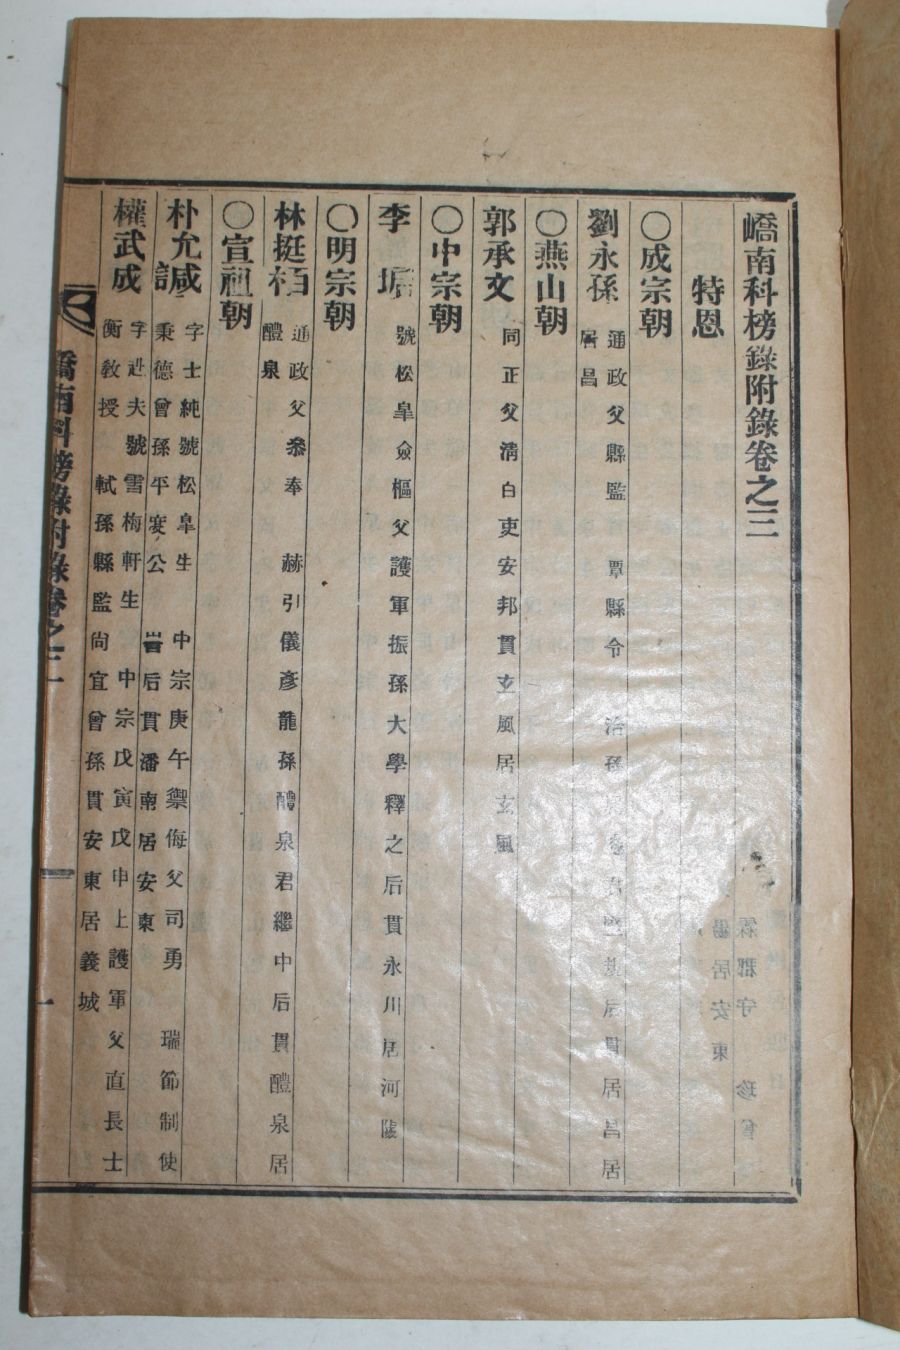 嶠南科榜錄附錄卷之三
特恩
〇成宗朝
劉永孫 通政父縣監 覃縣令 治孫 后貫居昌居
居昌
〇燕山朝
郭承文 同正父淸白吏安邦貫玄風居玄風
〇中宗朝
李 塘 號松皐僉樞父護軍振孫大學釋之后貫永川居河陽
〇明宗朝
林挺栢 通政父叅奉 赫引儀彦龍孫醴泉君繼中后貫醴泉居
醴泉
〇宣祖朝
朴允諴 字士純號松皐生 中宗庚午禦侮父司勇 瑞節制使
秉德曾孫平度公 訔后貫潘南居安東
權武成 字 夫號雪梅軒生 中宗戊寅戊申上護軍父直長士
衡敎授 軾孫縣監尙宜曾孫貫安東居義城
嶠南科榜錄附錄卷之三
一